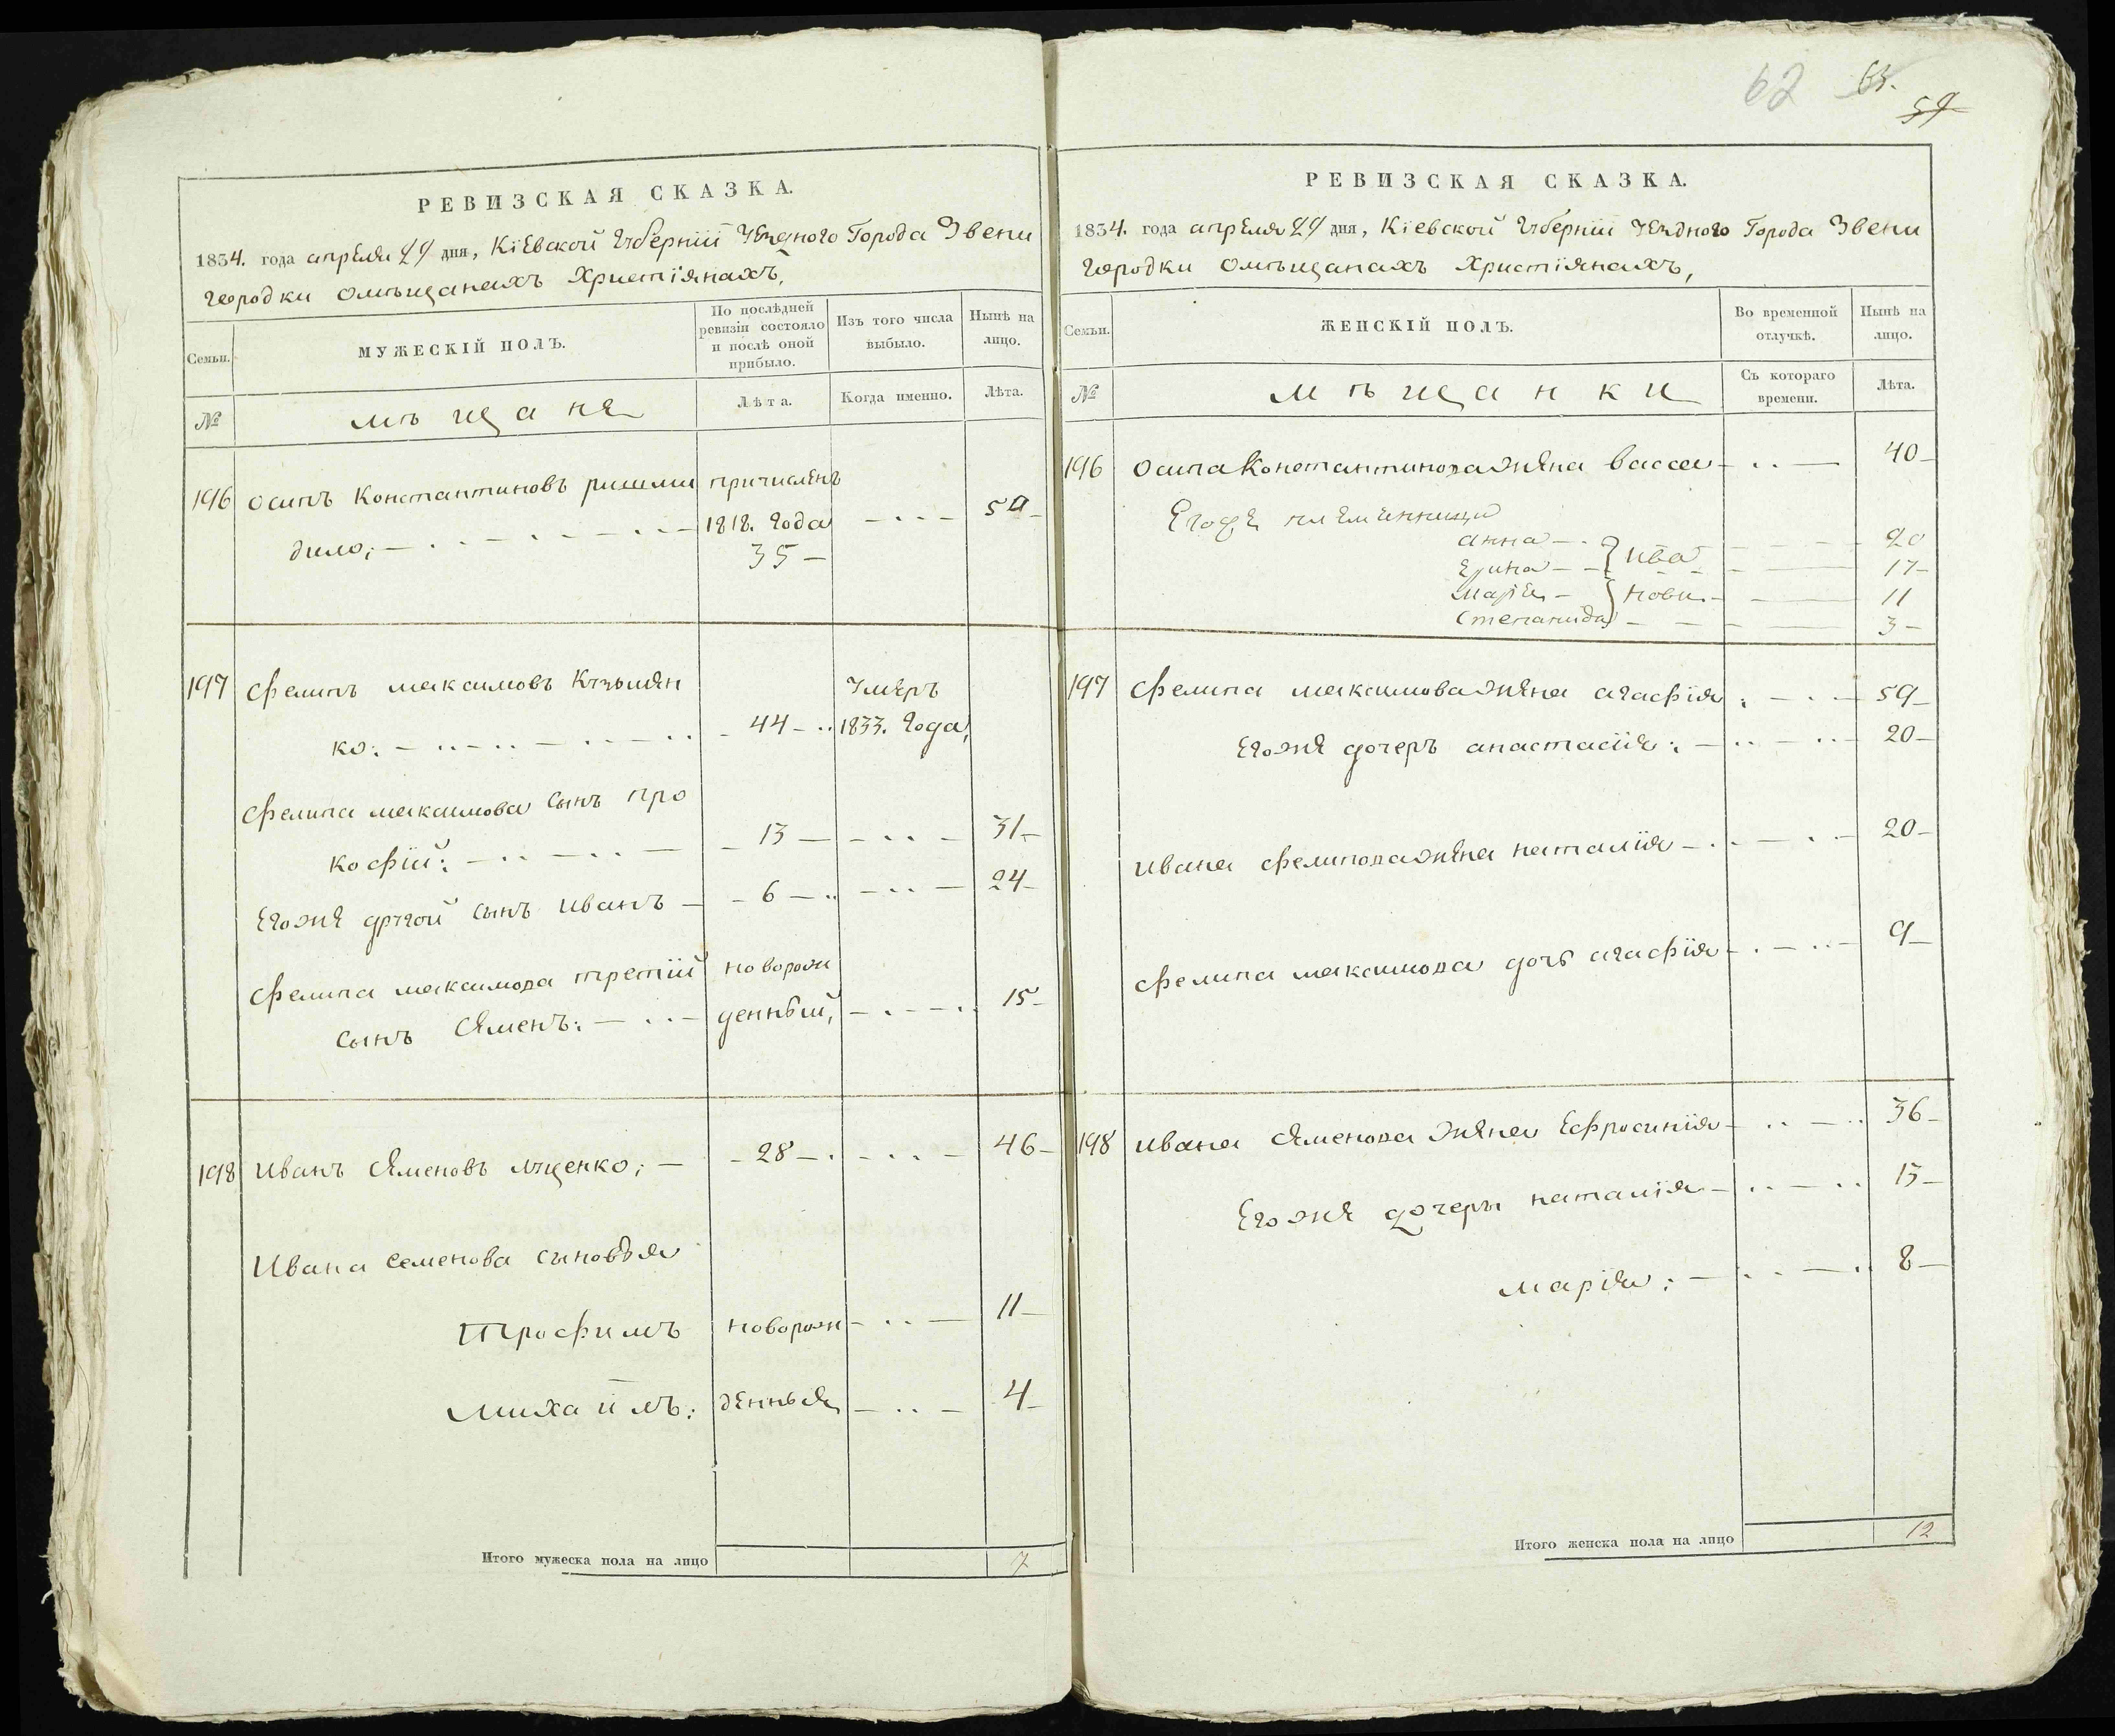 62 63. 59
РЕВИЗСКАЯ СКАЗКА.
1834. года апреля 29 дня, Кіевской Губерніи Уезднаго Города Звени
городки омѣщанахъ Христіянахъ,
Семьи.
МУЖЕСКІЙ ПОЛЪ.
По послѣдней ревизіи состояло и послѣ оной прибыло.
Изъ того числа выбыло.
Нынѣ на лицо.
№
мѣщане
Лѣта.
Когда именно.
Лѣта.
196 Осипъ Константиновъ причисленъ
1818. года 59
35
197 Фелипъ Максимовъ Кузьмен Умеръ
ко: 44 1833. года,
Фелипа Максимова сынъ Про
кофій: 13 31
Егоже другой сынъ Иванъ 6 24
Фелипа Максимова третій новорож
сынъ Семенъ: денный, 15
198 Иванъ Семеновъ Луценко; 28 46
Ивана Семенова сыновья
Трофимъ новорож 11
Михайлъ: денные 4
Итого мужеска пола на лицо 7
РЕВИЗСКАЯ СКАЗКА.
1834. года апреля 29 дня, Кіевской Губерніи Уезднаго Города Звени
городки омѣщанахъ Христіянахъ,
Семьи.
ЖЕНСКІЙ ПОЛЪ.
Во временной отлучкѣ.
Нынѣ на лицо.
№
мѣщанки
Съ котораго времени.
Лѣта.
196 Осипа Константинова жена Васса 40
Егоже племенници
Анна Ива 20
Ерина 17
Марія новы 11
Степанида 3
197 Фелипа Максимова жена Агафія: 59
Егоже дочеръ Анастасія: 20
Ивана Фелипова жена Наталія 20
Фелипа Максимова дочь Агафія 9
198 Ивана Семенова жена Ефросинія 36
Егоже дочеры Наталія 13
Марія: 8
Итого женска пола на лицо 12